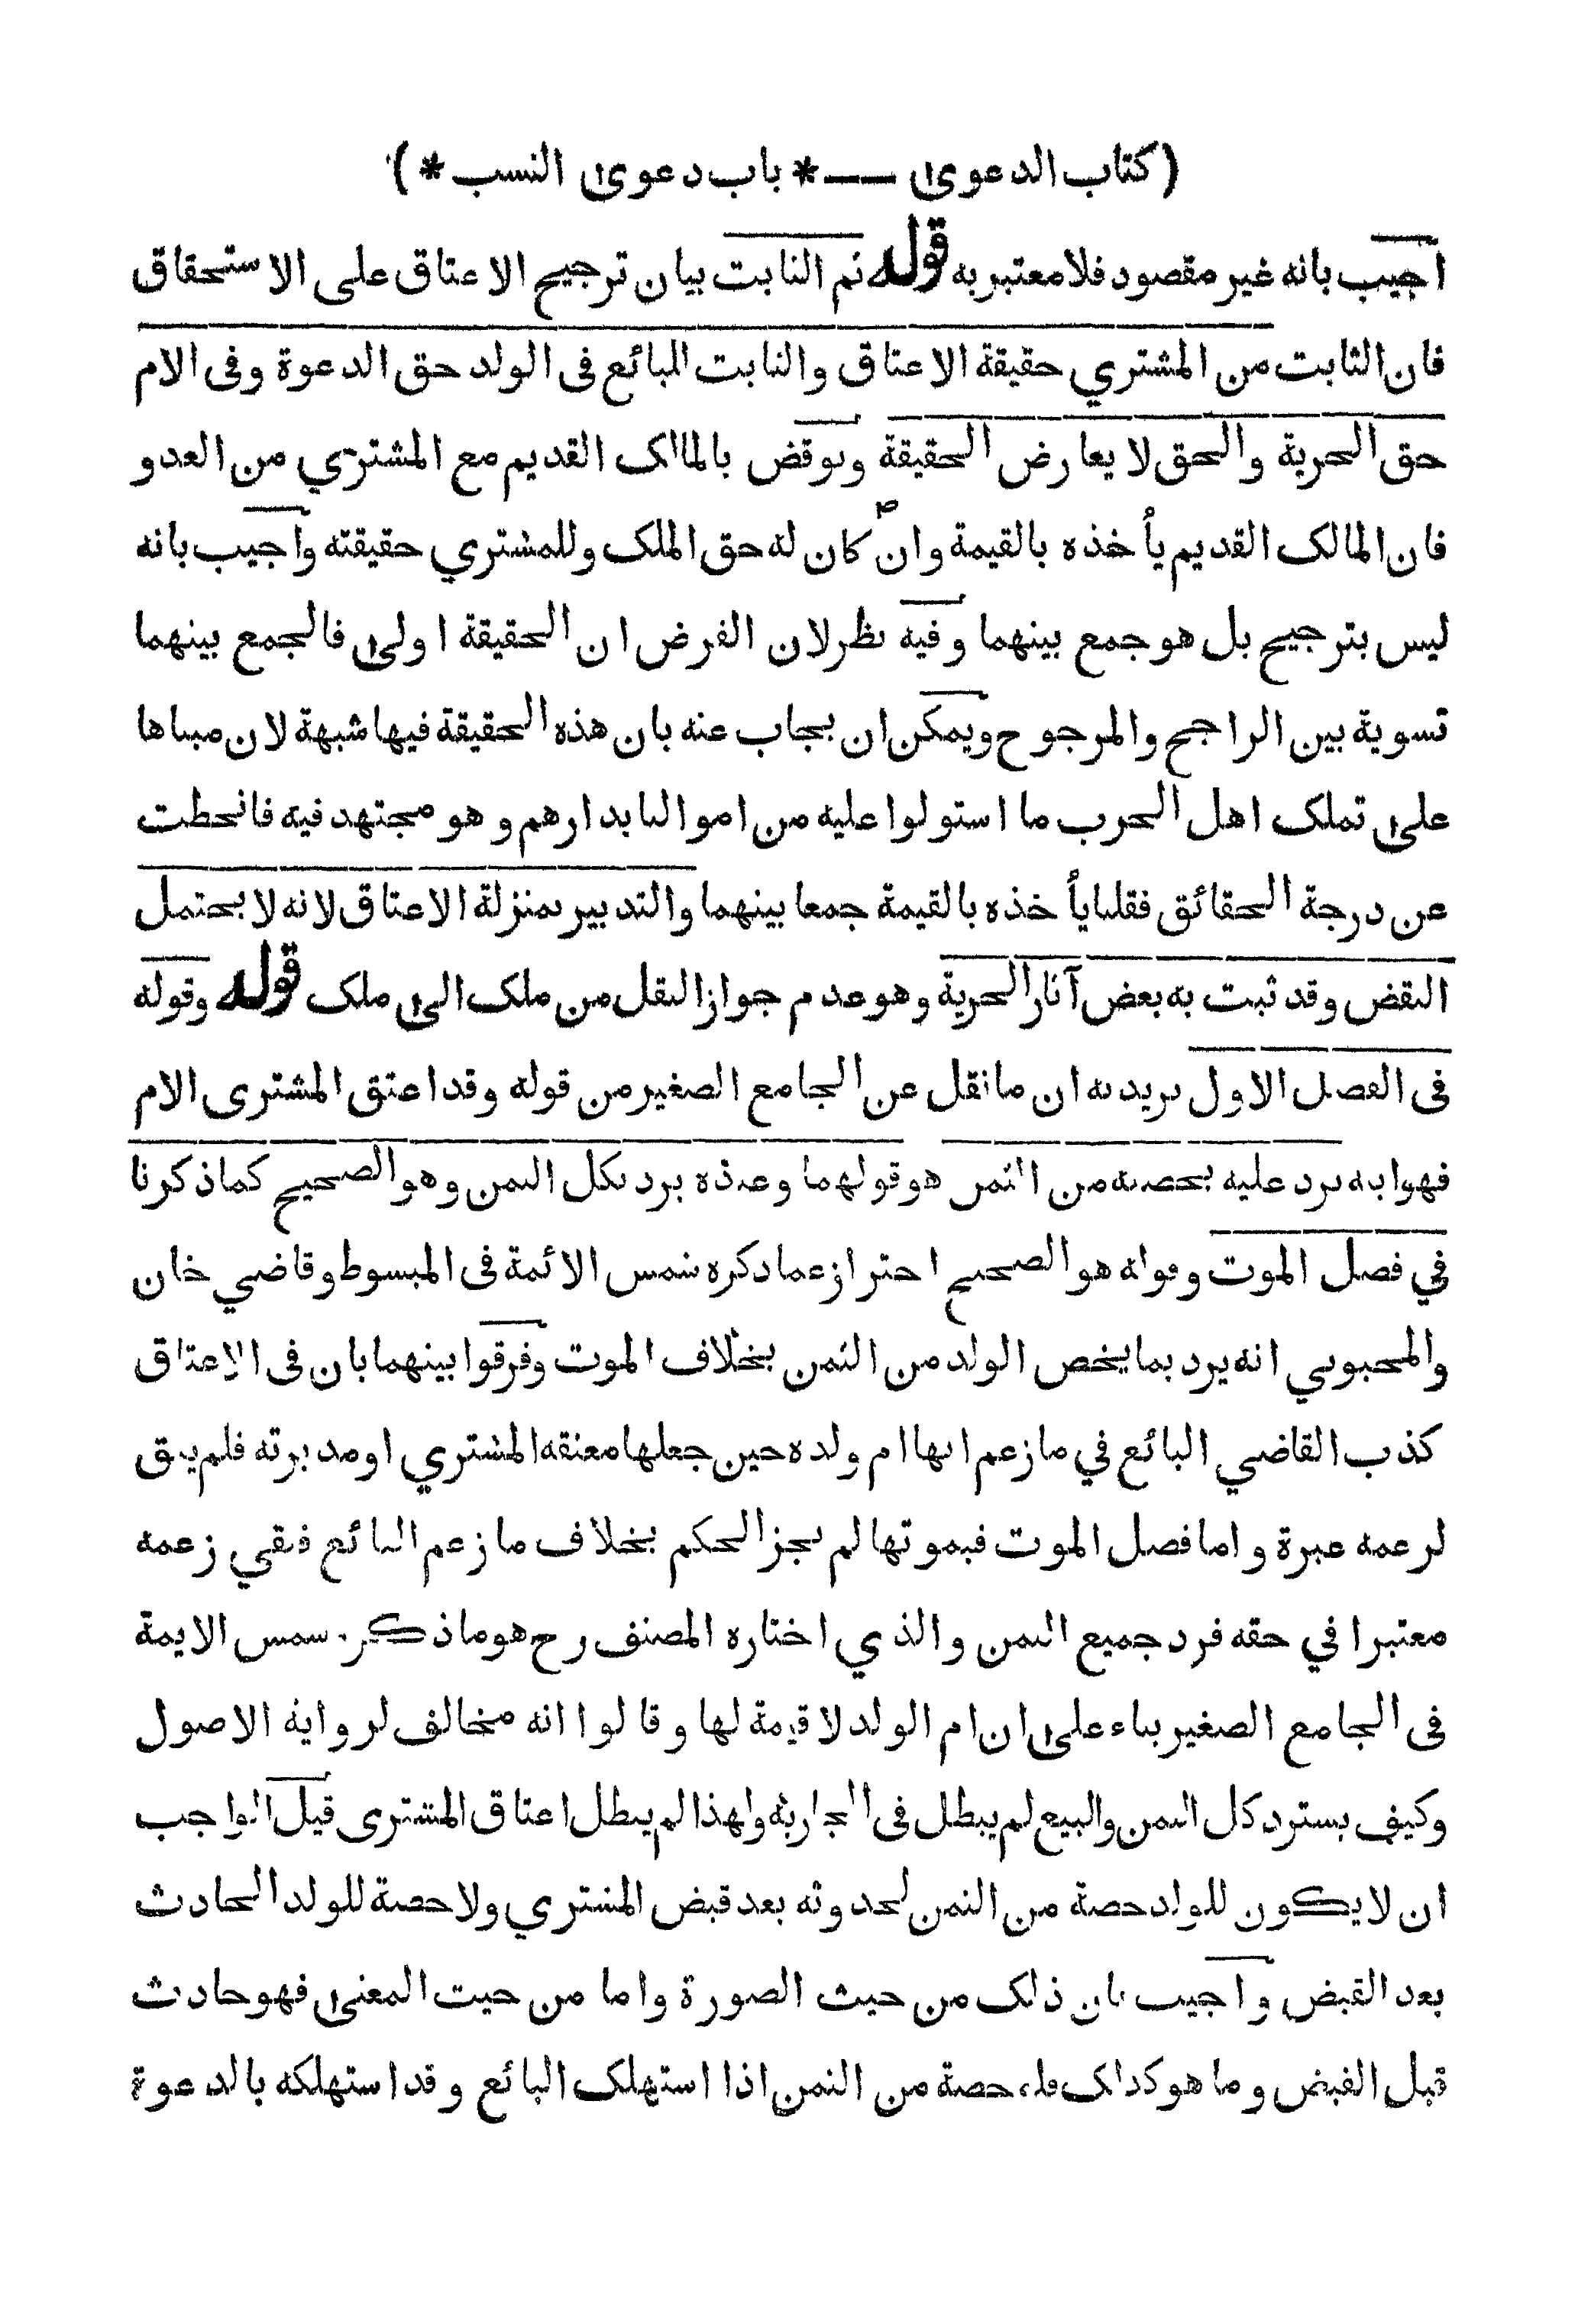 (كتاب الدعوى — * باب دعوى النسب *)
اجيب بانه غير مقصود فلا معتبر به قوله ثم الثابت بيان ترجيح الاعتاق على الاستحقاق
فان الثابت من المشتري حقيقة الاعتاق والثابت للبائع فى الولد حق الدعوة وفى الام
حق الحرية والحق لا يعارض الحقيقة ونوقض بالمالك القديم مع المشتري من العدو
فان المالك القديم يأخذه بالقيمة وان كان له حق الملك وللمشتري حقيقته واجيب بانه
ليس بترجيح بل هو جمع بينهما وفيه نظر لان الفرض ان الحقيقة اولى فالجمع بينهما
تسوية بين الراجح والمرجوح ويمكن ان يجاب عنه بان هذه الحقيقة فيها شبهة لان مبناها
على تملك اهل الحرب ما استولوا عليه من اموالنا بدارهم وهو مجتهد فيه فانحطت
عن درجة الحقائق فقلنا يأخذه بالقيمة جمعا بينهما والتدبير بمنزلة الاعتاق لانه لا يحتمل
النقض وقد ثبت به بعض آثار الحرية وهو عدم جواز النقل من ملك الى ملك قوله وقوله
فى الفصل الاول يريد به ان ما نقل عن الجامع الصغير من قوله وقد اعتق المشترى الام
فهو ابنه يرد عليه بحصته من الثمن هو قولهما وعنده يرد بكل الثمن وهو الصحيح كما ذكرنا
في فصل الموت وقوله هو الصحيح احتراز عما ذكره شمس الائمة فى المبسوط وقاضي خان
والمحبوبي انه يرد بما يخص الولد من الثمن بخلاف الموت وفرقوا بينهما بان فى الاعتاق
كذب القاضي البائع في ما زعم انها ام ولده حين جعلها معتقه المشتري او مدبرته فلم يبق
لزعمه عبرة واما فصل الموت فبموتها لم يجز الحكم بخلاف ما زعم البائع فبقي زعمه
معتبرا في حقه فرد جميع الثمن والذي اختاره المصنف رح هو ما ذكر شمس الايمة
فى الجامع الصغير بناء على ان ام الولد لا قيمة لها وقالوا انه مخالف لرواية الاصول
وكيف يسترد كل الثمن والبيع لم يبطل فى الجارية ولهذا لم يبطل اعتاق المشترى قيل الواجب
ان لا يكون للولد حصة من الثمن لحدوثه بعد قبض المشتري ولا حصة للولد الحادث
بعد القبض واجيب بان ذلك من حيث الصورة واما من حيث المعنى فهو حادث
قبل القبض وما هو كذلك فله حصة من الثمن اذا استهلك البائع وقد استهلكه بالدعوة